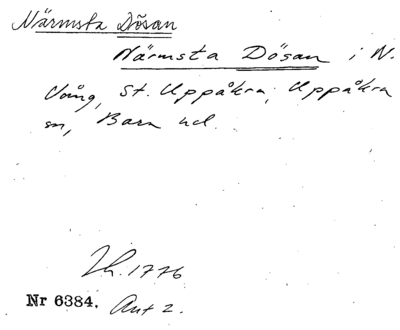 Närmsta Dösan
Närmsta Dösan i N.
Vång, St. Uppåkra, Uppåkra
sn, Bara hd.
Lh. 1776
Nr 6384. Akt 2.